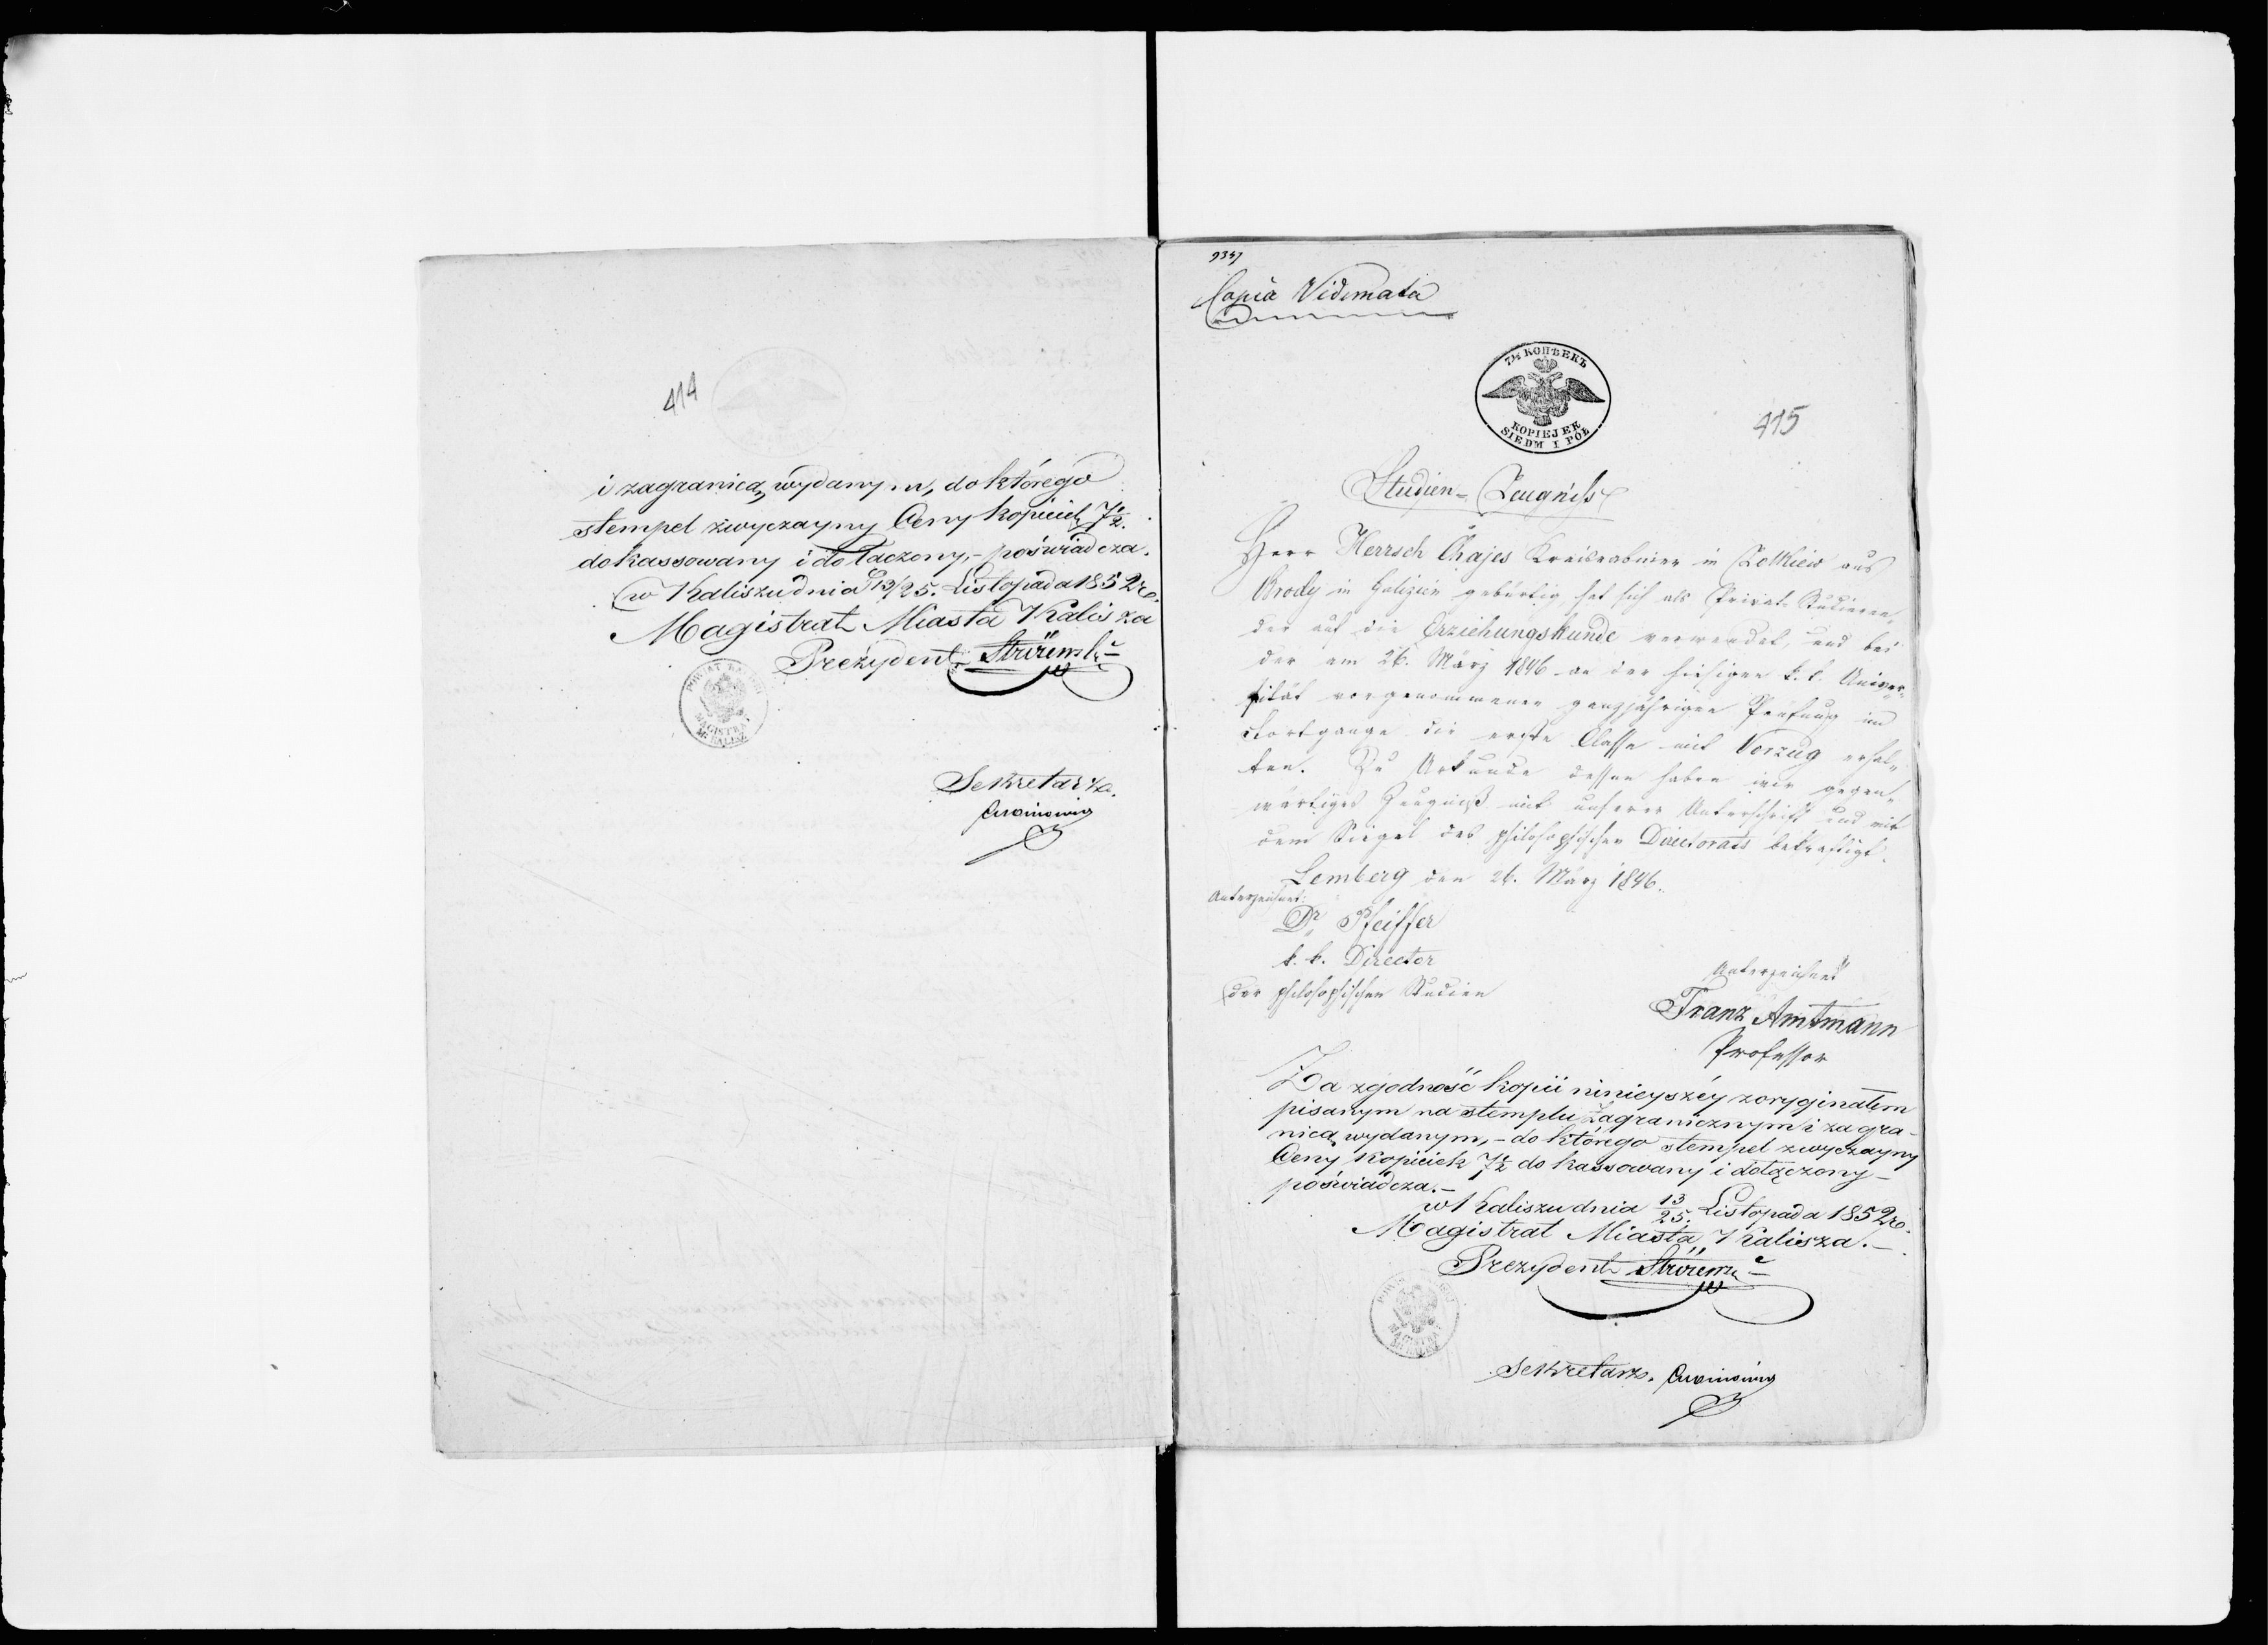 414
i zagranicą wydanym, do którego
stempel zwyczayny Ceny kopieiek 7½.
do kassowany i dołączony,- poświadcza.
w Kaliszu dnia 13/25. Listopada 1852 ro.
Magistrat Miasta Kalisza
Prezydent
POWIAT KALISKI
MAGISTRAT
M. KALISZ
Sekretarz.
9347
Copia Vidimata
7½ КОПѢЕКЪ
KOPIEJEK
SIEDM I PÓŁ
415
Studien-Zeugniss
Herr Herrsch Chajes Kreisrabiner in Zolkiew aus
Brody in Galizien gebürtig, hat sich als Privat-Studieren-
der auf die Erziehungskunde verwendet, und bei
der am 26. März 1846 an der hiesigen k. k. Univer-
sität vorgenommenen ganzjährigen Prüfung im
Fortgange die erste Classe mit Vorzug erhal-
ten. Zu Urkunde dessen haben wir gegen-
wärtiges Zeugniß mit unserer Unterschrift und mit
dem Siegel des philosophischen Directorats bekräftigt.
Lemberg den 26. März 1846.
Unterzeichnet:
Dr. Pfeiffer
k. k. Director
der philosophischen Studien
Unterzeichnet
Franz Amtmann
Professor
Za zgodność kopii ninieyszéy z oryginałem
pisanym na stemplu zagranicznym i zagra-
nicą wydanym, - do którego stempel zwyczayny
Ceny kopieiek 7½ do kassowany i dołączony -
poświadcza. -
w Kaliszu dnia 13/25. Listopada 1852 ro.
Magistrat Miasta Kalisza. -
Prezydent
MAGISTRAT
M. KALISZ
Sekretarz.